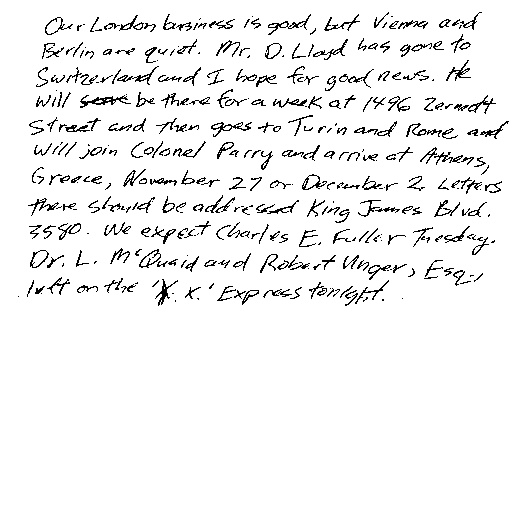 Our London business is good, but Vienna and
Berlin are quiet. Mr. D. Lloyd has gone to
Switzerland and I hope for good news. He
will be there for a week at 1496 Zermott
Street and then goes to Turin and Rome and
will join Colonel Parry and arrive at Athens,
Greece, November 27 or December 2. Letters
there should be addressed King James Blvd.
3580. We expect Charles E. Fuller Tuesday.
Dr. L. McQuaid and Robert Unger, Esq.,
left on the 'X. X.' Express tonight.